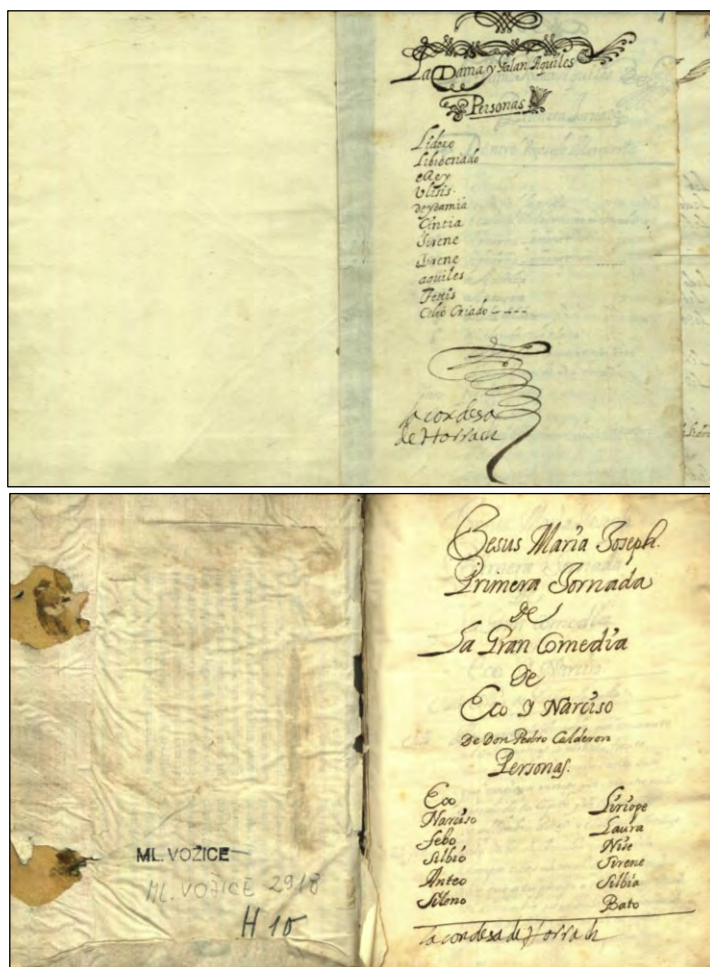 1
La Dama y Galan Aquiles
Personas
Lidoro
Libio criado
el Rey
Ulisis.
deydamia
Cintia
Sirene
Sirene
aquiles
Tetis
Celio Criado
la condesa
de Horrach
Jesus Maria Joseph.
Primera Jornada
de
La Gran Comedia
De
Eco y Narciso
De Don Pedro Calderon
Personas.
Eco
Narciso
Febo
Silbio
Anteo
Sileno
Liriope
Laura
Nise
Sirene
Silbia
Bato
la condesa de Horrach
ML. VOŽICE
ML. VOŽICE 2918
H 10